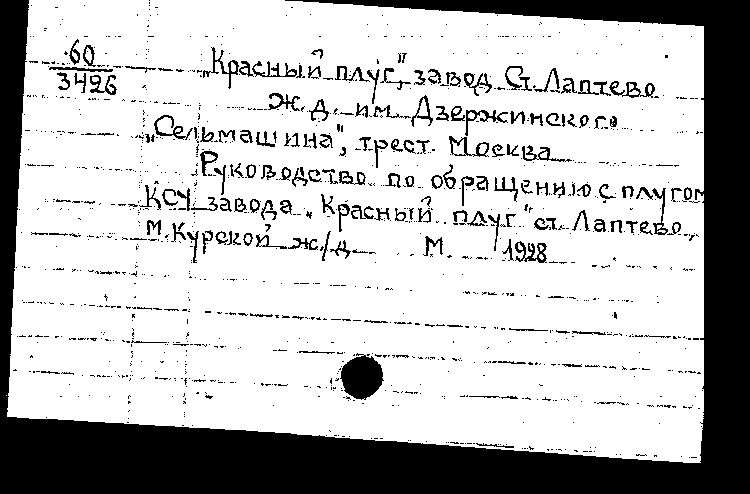 60
3426
„Красный плуг", завод Ст. Лаптево
ж.д. им. Дзержинского
„Сельмашина", трест. Москва
Руководство по обращению с плугом
КСУ завода „Красный плуг" ст. Лаптево,
М. Курской ж/д М. 1928